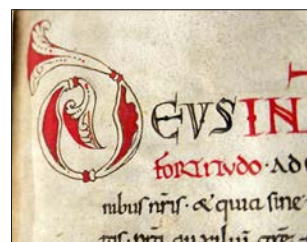 DEUS IN
FORTITUDO · AD
nibus nr̃is · & quia sine